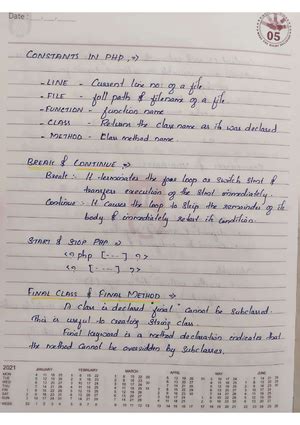 Date :
05
CONSTANTS IN PHP :→
- LINE - Current line no: of a file
- FILE - full path & filename of a file
- FUNCTION - function name
- CLASS - Return the class name as it was declared
- METHOD - Class method name
BREAK & CONTINUE :→
Break :- It terminates the for loop or switch stmt &
transfers execution of the stmt immediately.
Continue :- It causes the loop to skip the remainder of its
body & immediately retest its condition.
START & STOP PHP :→
<? php [---] ?>
<? [---] ?>
FINAL CLASS & FINAL METHOD :→
A class is declared "final" cannot be subclassed.
This is useful to creating string class.
Final keyword is a method declaration indicates that
the method cannot be overridden by subclasses.
2021 JANUARY FEBRUARY MARCH APRIL MAY JUNE